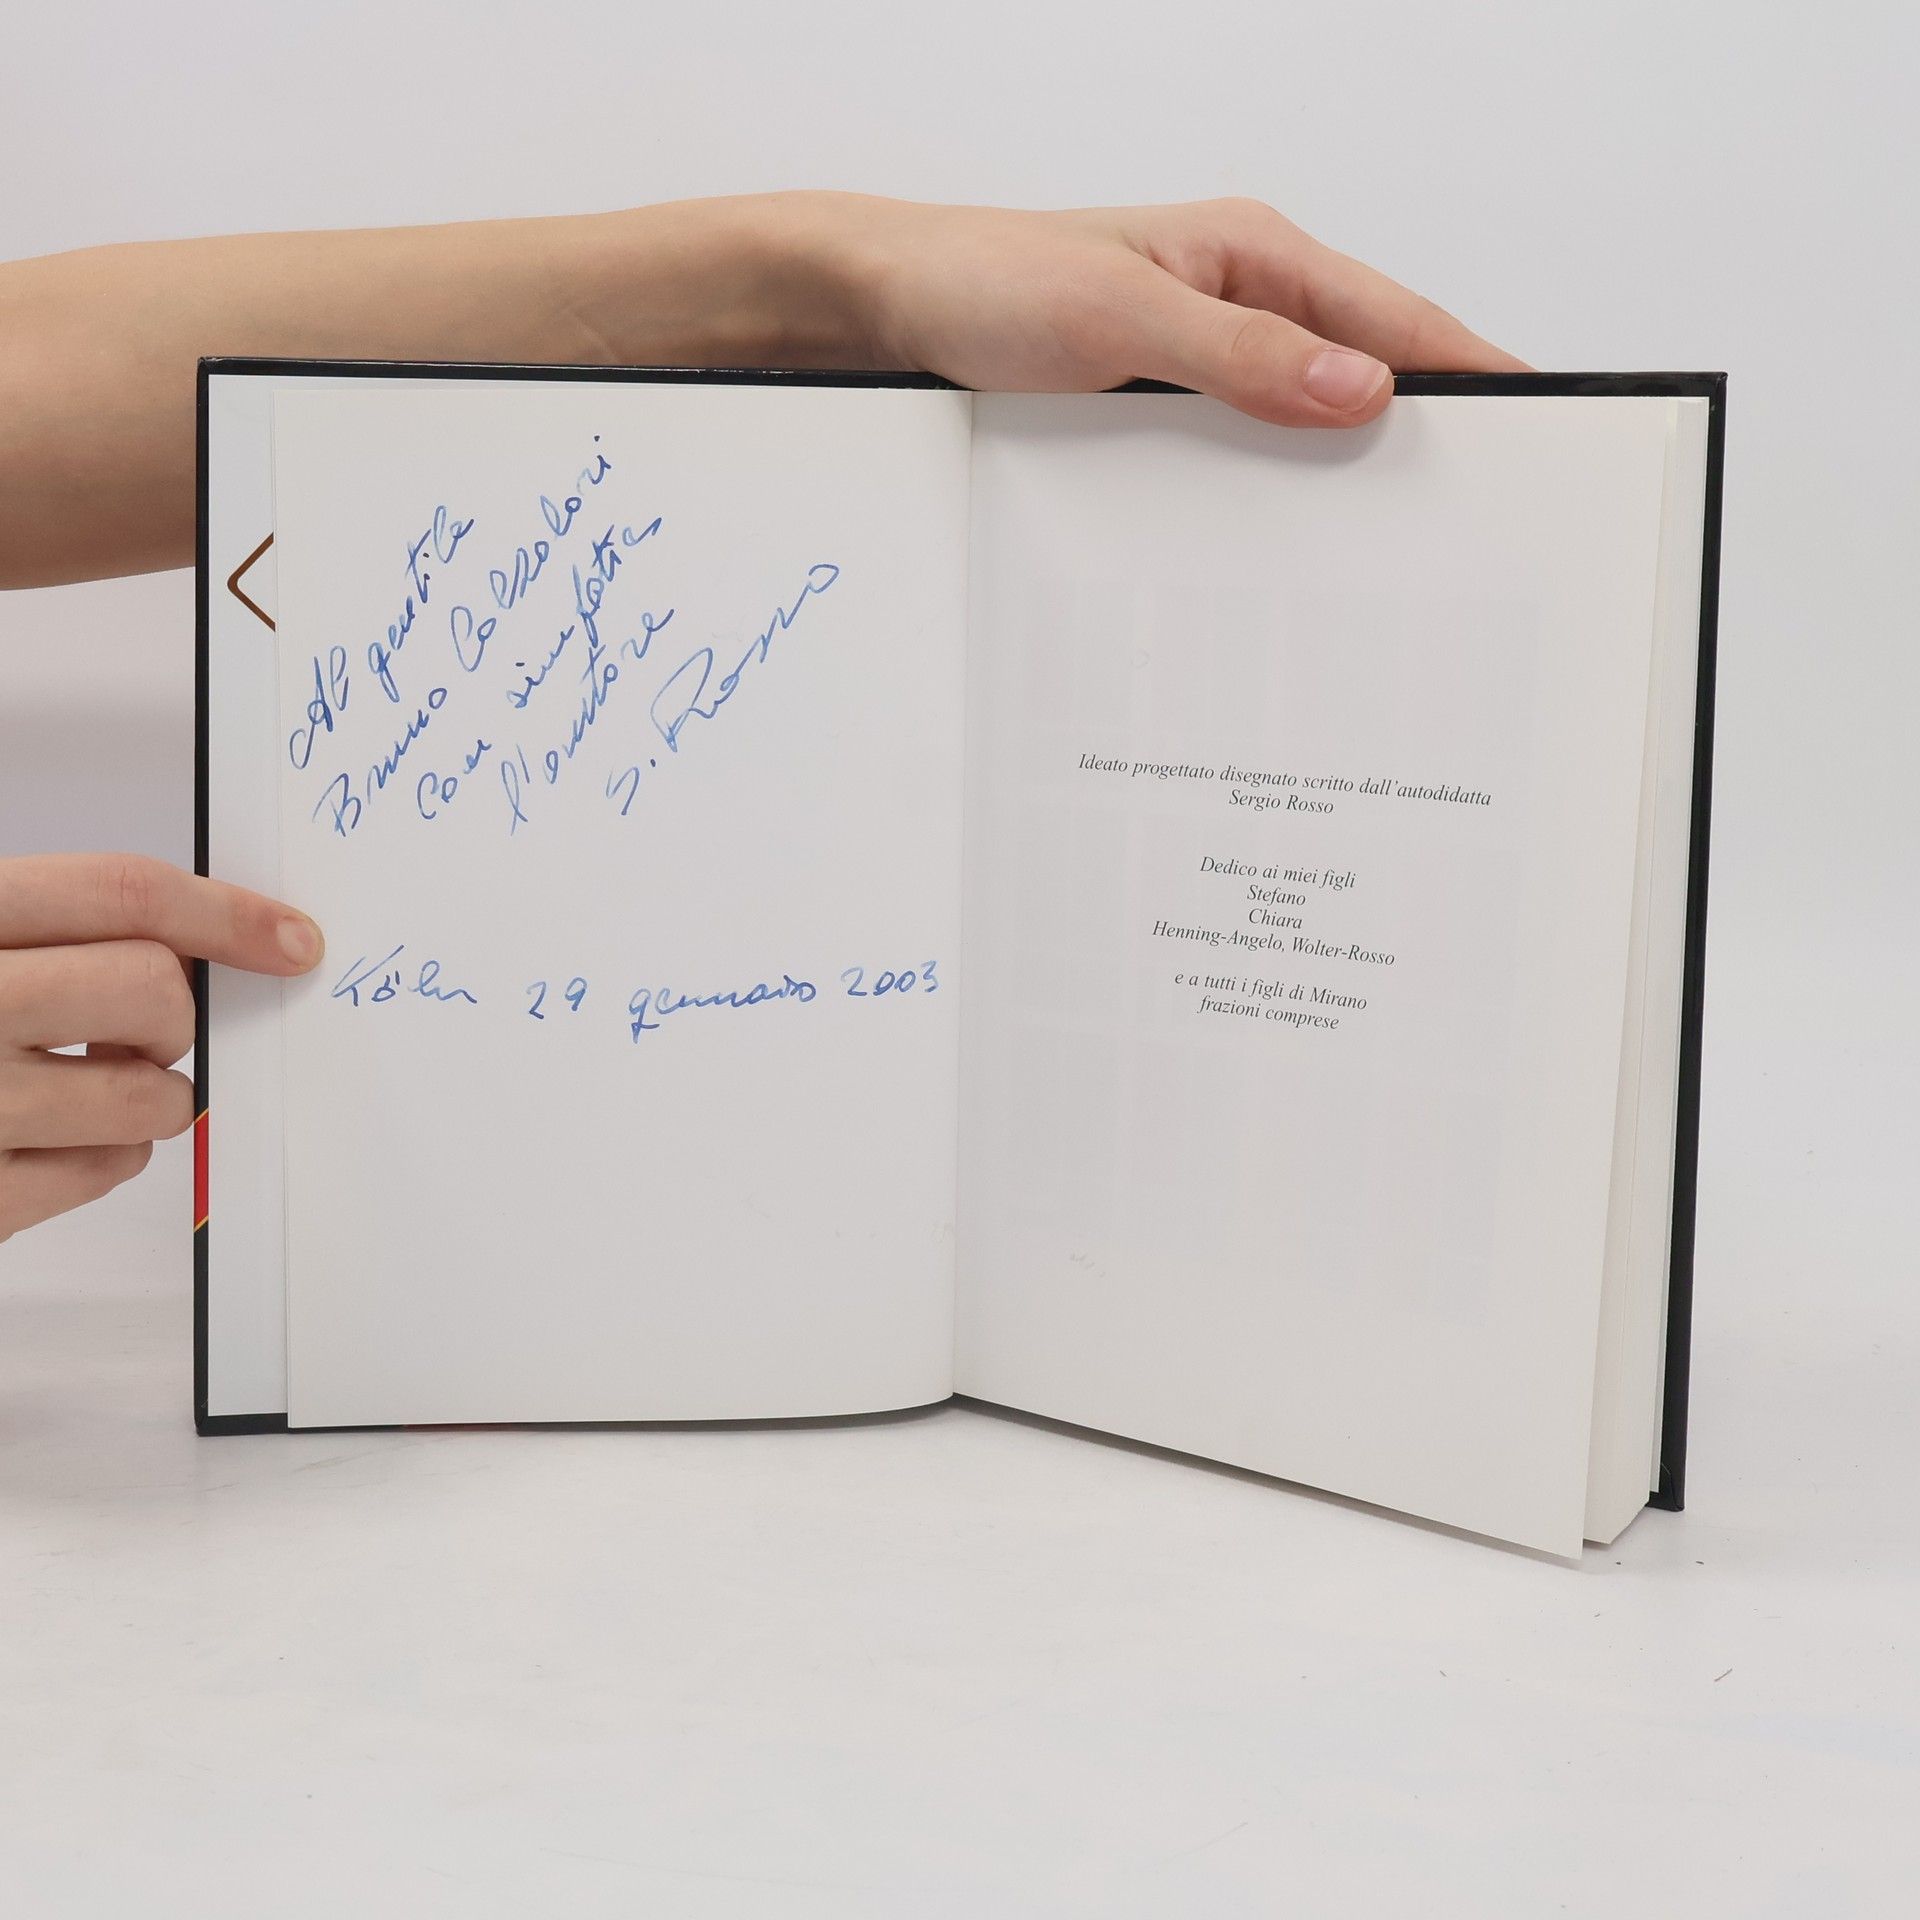 Al gentile
Bruno Calzolari
con simpatia
l'autore
S. Rosso
Köln 29 gennaio 2003
Ideato progettato disegnato scritto dall'autodidatta
Sergio Rosso
Dedico ai miei figli
Stefano
Chiara
Henning-Angelo, Wolter-Rosso
e a tutti i figli di Mirano
frazioni comprese